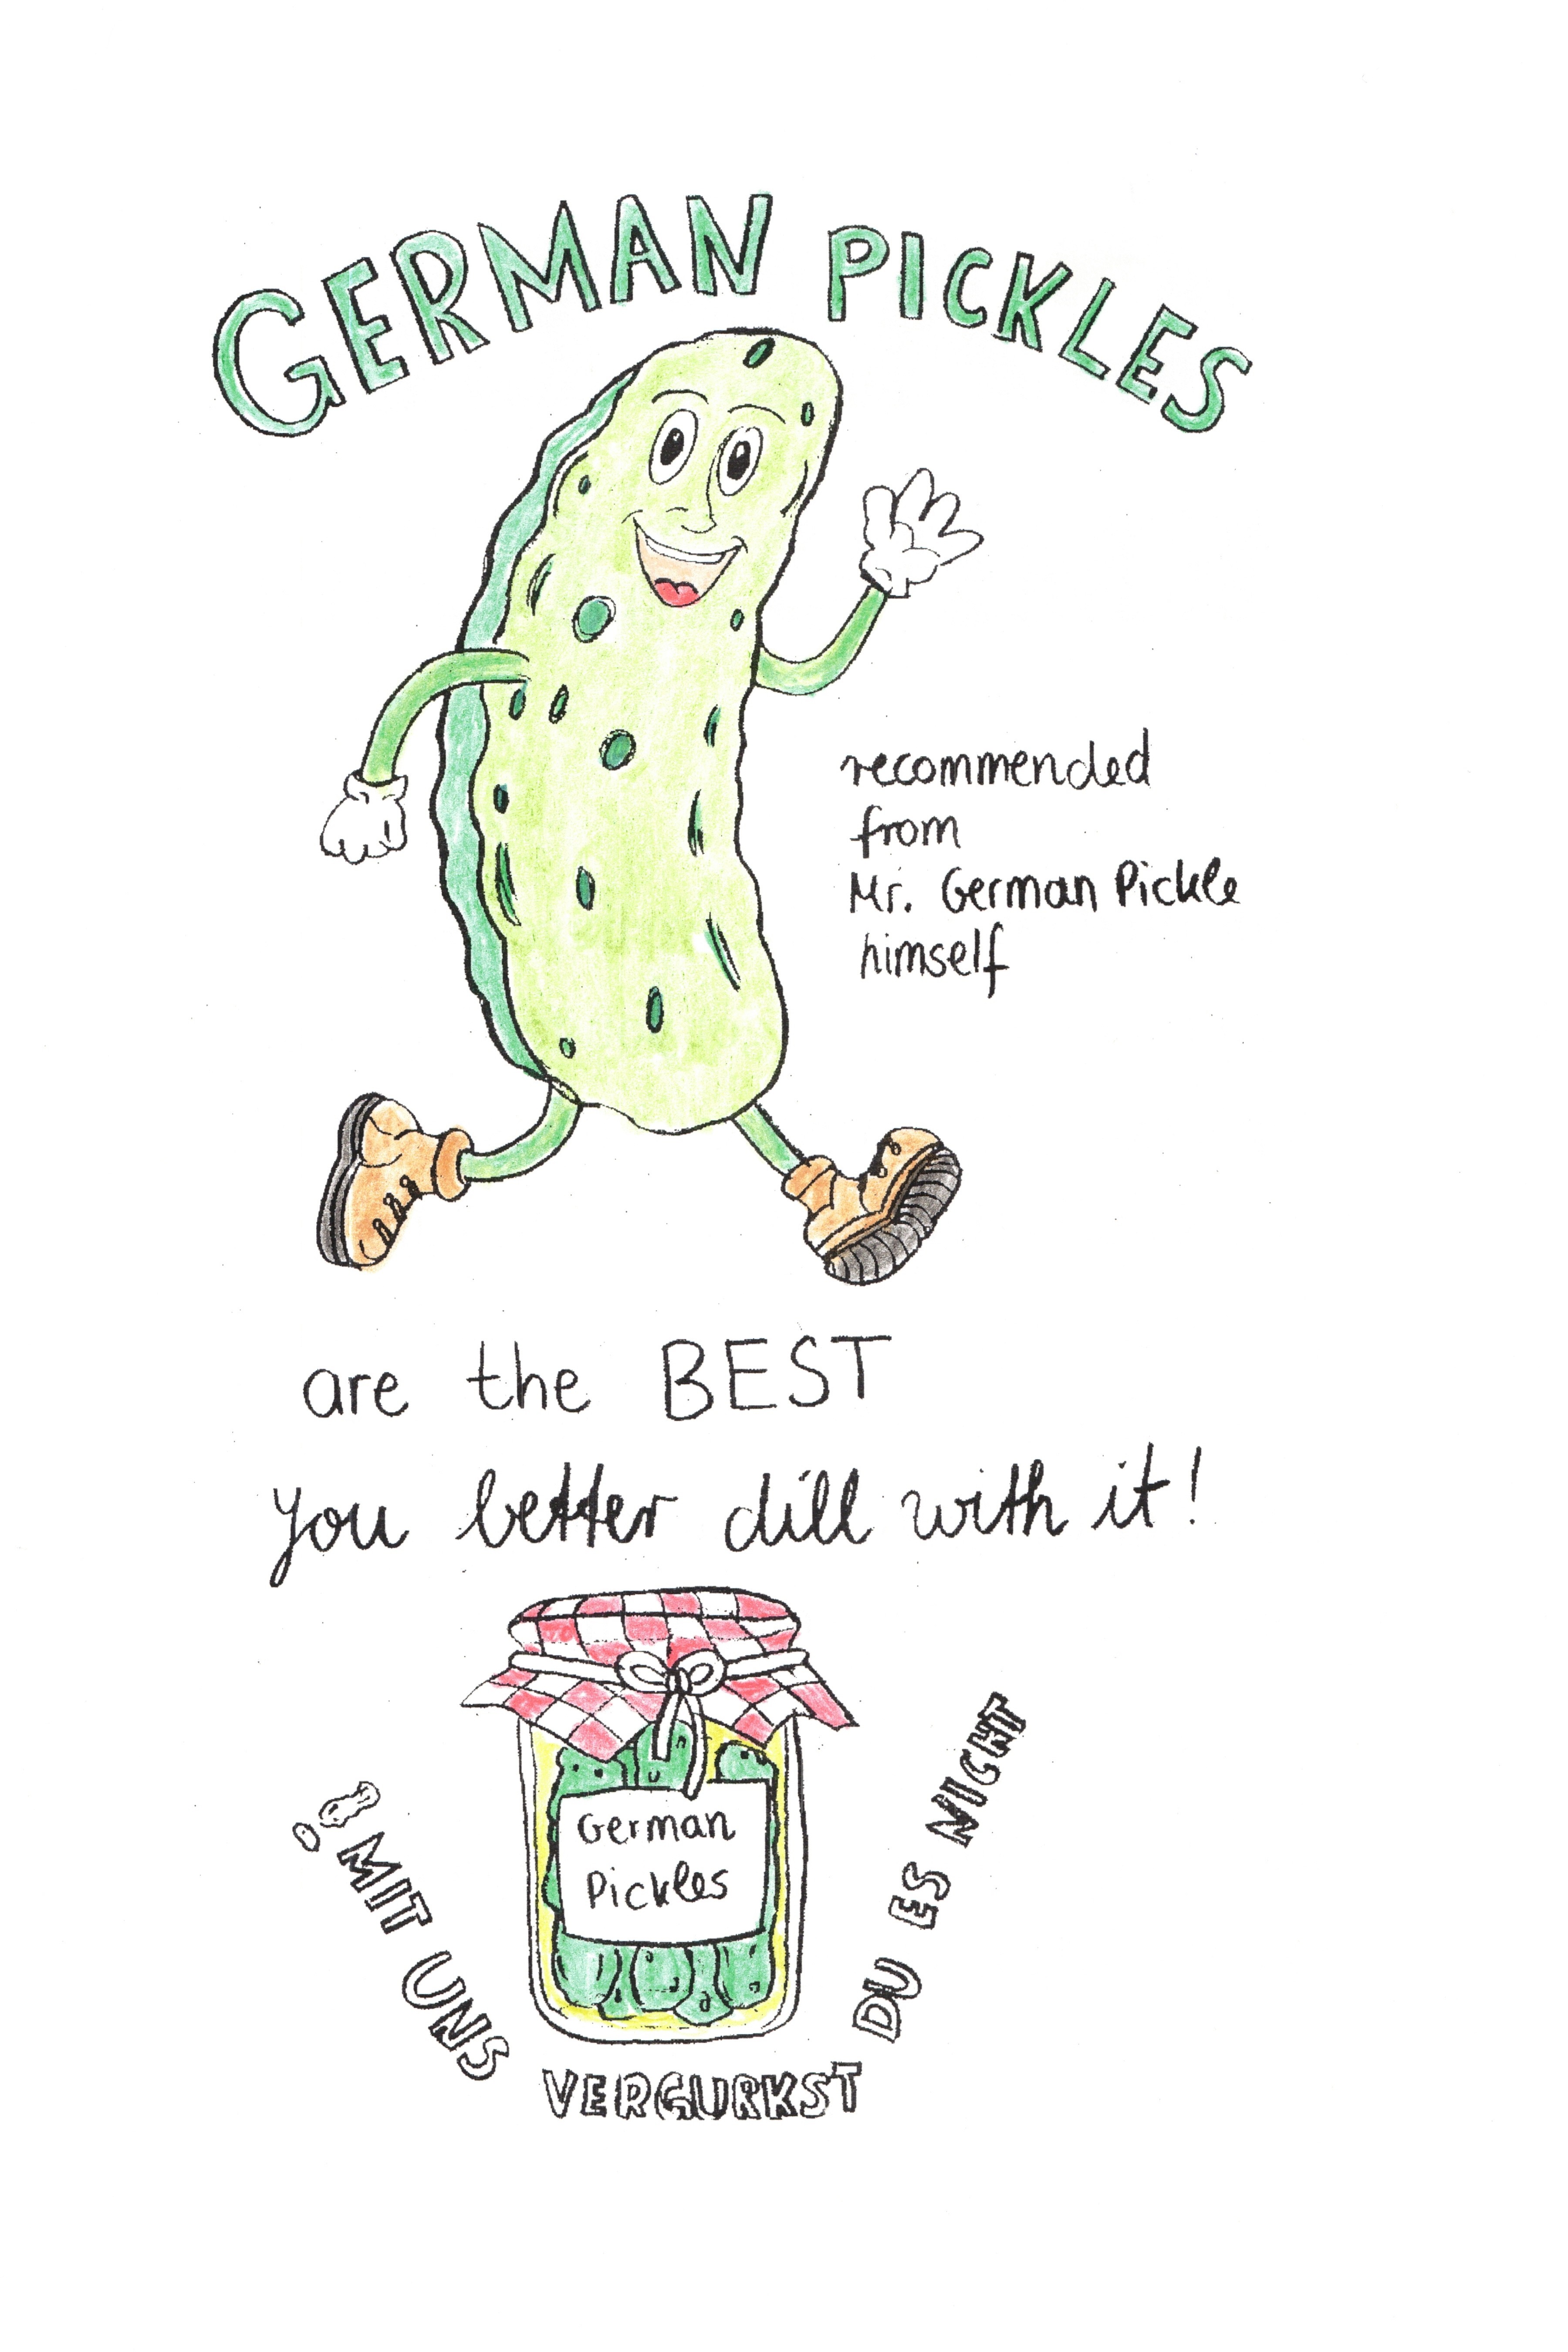 GERMAN PICKLES
recommended
from
Mr. German Pickle
himself
are the BEST
you better dill with it!
German
Pickles
! MIT UNS VERGURKST DU ES NICHT